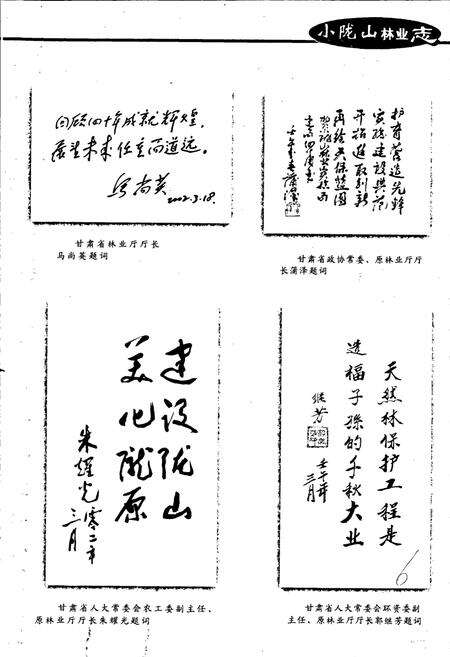 小陇山林业志
回顾四十年成就辉煌,
展望未来任重而道远。
马尚英
2002.3.18.
甘肃省林业厅厅长
马尚英题词
护育营造先锋
实践建设典范
开拓进取创新
再绘天保蓝图
甘肃省政协常委、原林业厅厅
长蒲泽题词
建设陇山
美化陇原
朱耀光零二年
三月
甘肃省人大常委会农工委副主任、
原林业厅厅长朱耀光题词
天然林保护工程是
造福子孙的千秋大业
继芳
壬午年
三月
6
甘肃省人大常委会环资委副
主任、原林业厅厅长郭继芳题词